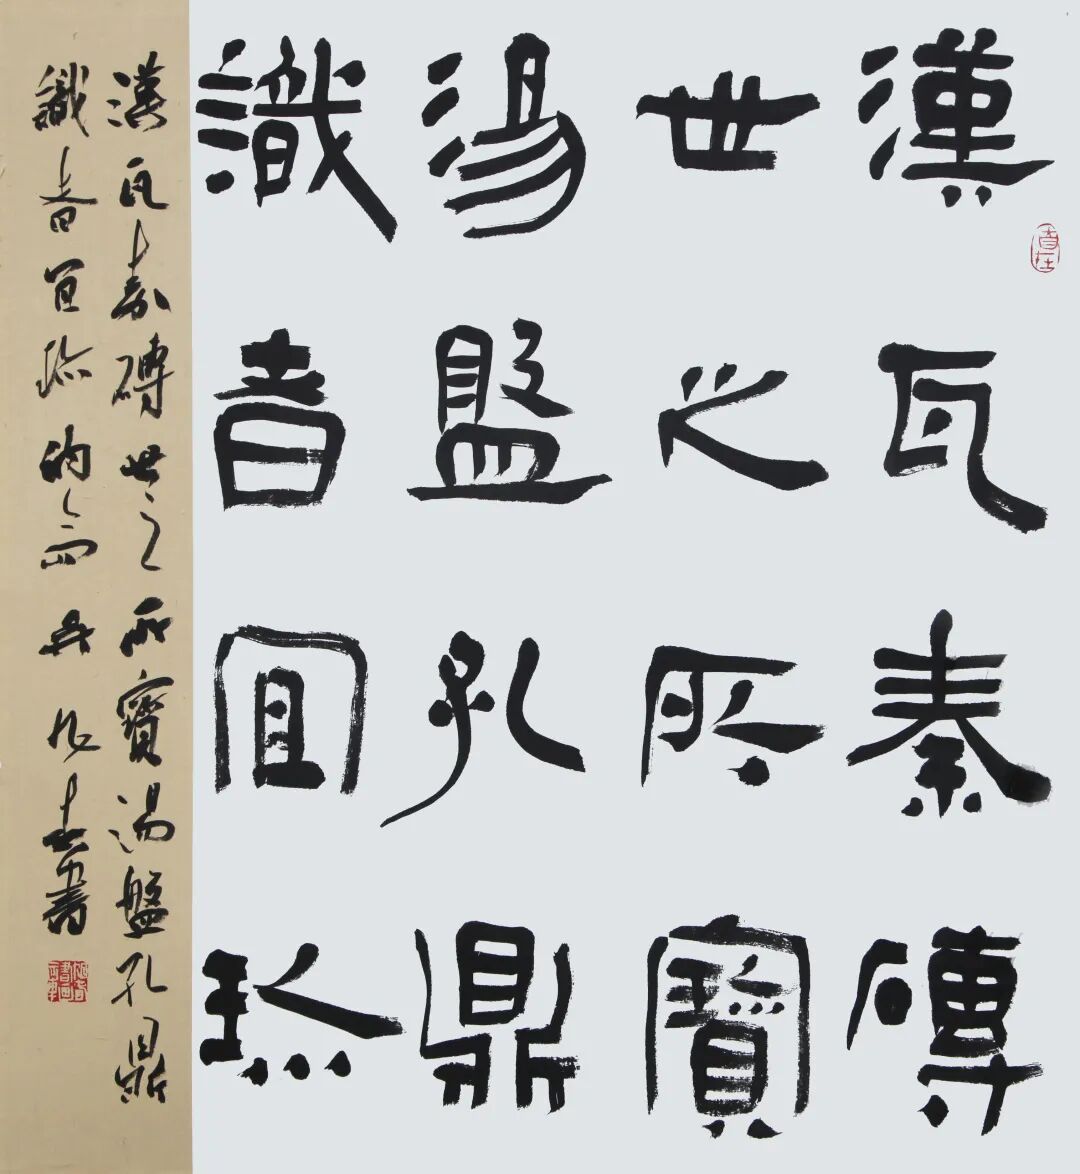 漢瓦秦磚
世之所寶
湯盤孔鼎
識者宜珍
漢瓦秦磚世之所寶湯盤孔鼎
識者宜珍 書